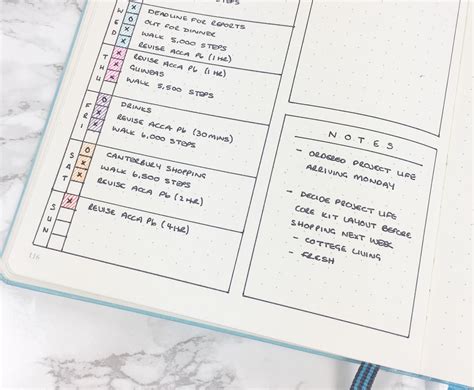 WED
x DEADLINE FOR REPORTS
o OUT FOR DINNER
x WALK 5,000 STEPS
x REVISE ACCA P6 (1 HR)
THU
x REVISE ACCA P6 (1 HR)
x GUINEAS
x WALK 5,500 STEPS
FRI
o DRINKS
x REVISE ACCA P6 (30 MINS)
x WALK 6,000 STEPS
SAT
o CANTERBURY SHOPPING
x WALK 6,500 STEPS
x REVISE ACCA P6 (2 HR)
SUN
x REVISE ACCA P6 (4 HR)
136
NOTES
- ORDERED PROJECT LIFE
ARRIVING MONDAY
- DECIDE PROJECT LIFE
CORE KIT LAYOUT BEFORE
SHOPPING NEXT WEEK
- COTTEGE LIVING
- FRESH